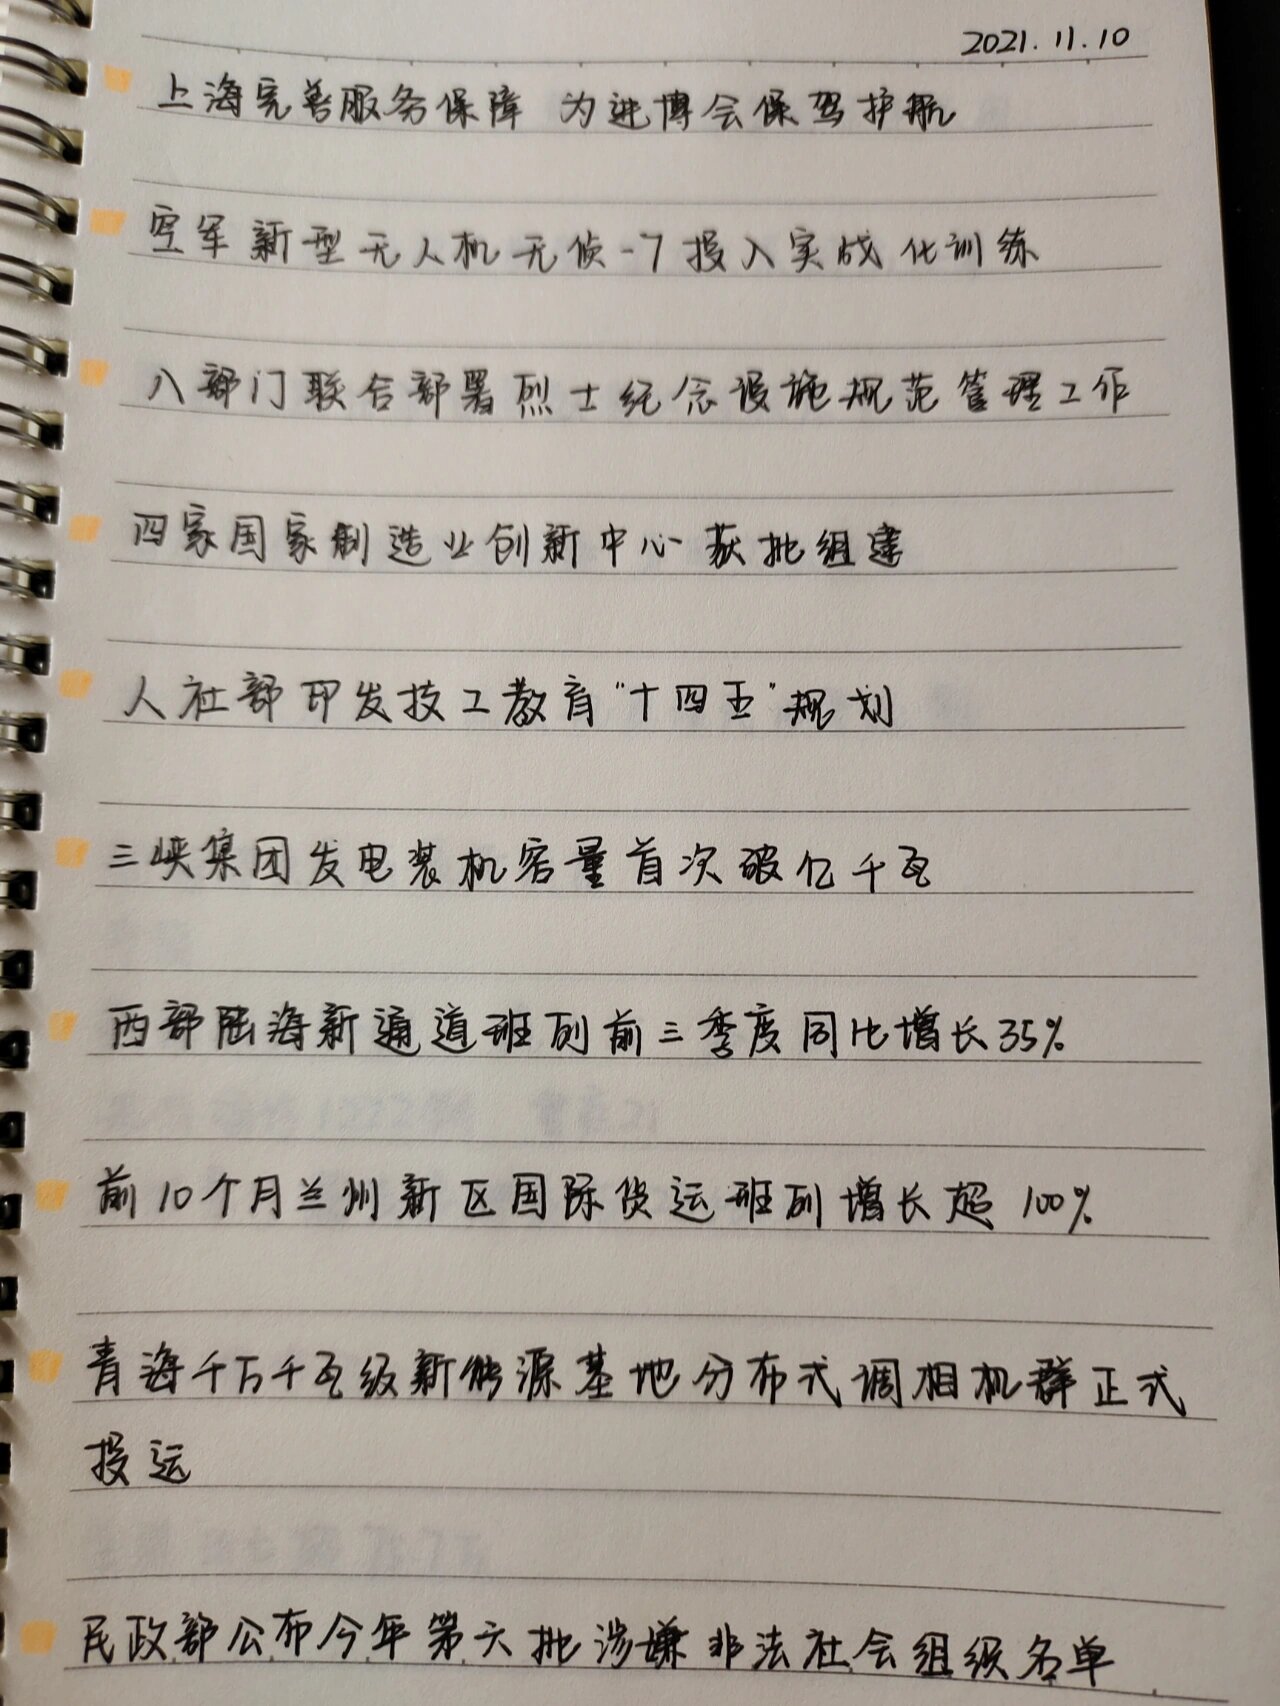 2021.11.10
上海完善服务保障 为进博会保驾护航
空军新型无人机无侦-7投入实战化训练
八部门联合部署烈士纪念设施规范管理工作
四家国家制造业创新中心获批组建
人社部印发技工教育“十四五”规划
三峡集团发电装机容量首次破亿千瓦
西部陆海新通道班列前三季度同比增长35%
前10个月兰州新区国际货运班列增长超100%
青海千万千瓦级新能源基地分布式调相机群正式
投运
民政部公布今年第六批涉嫌非法社会组织名单